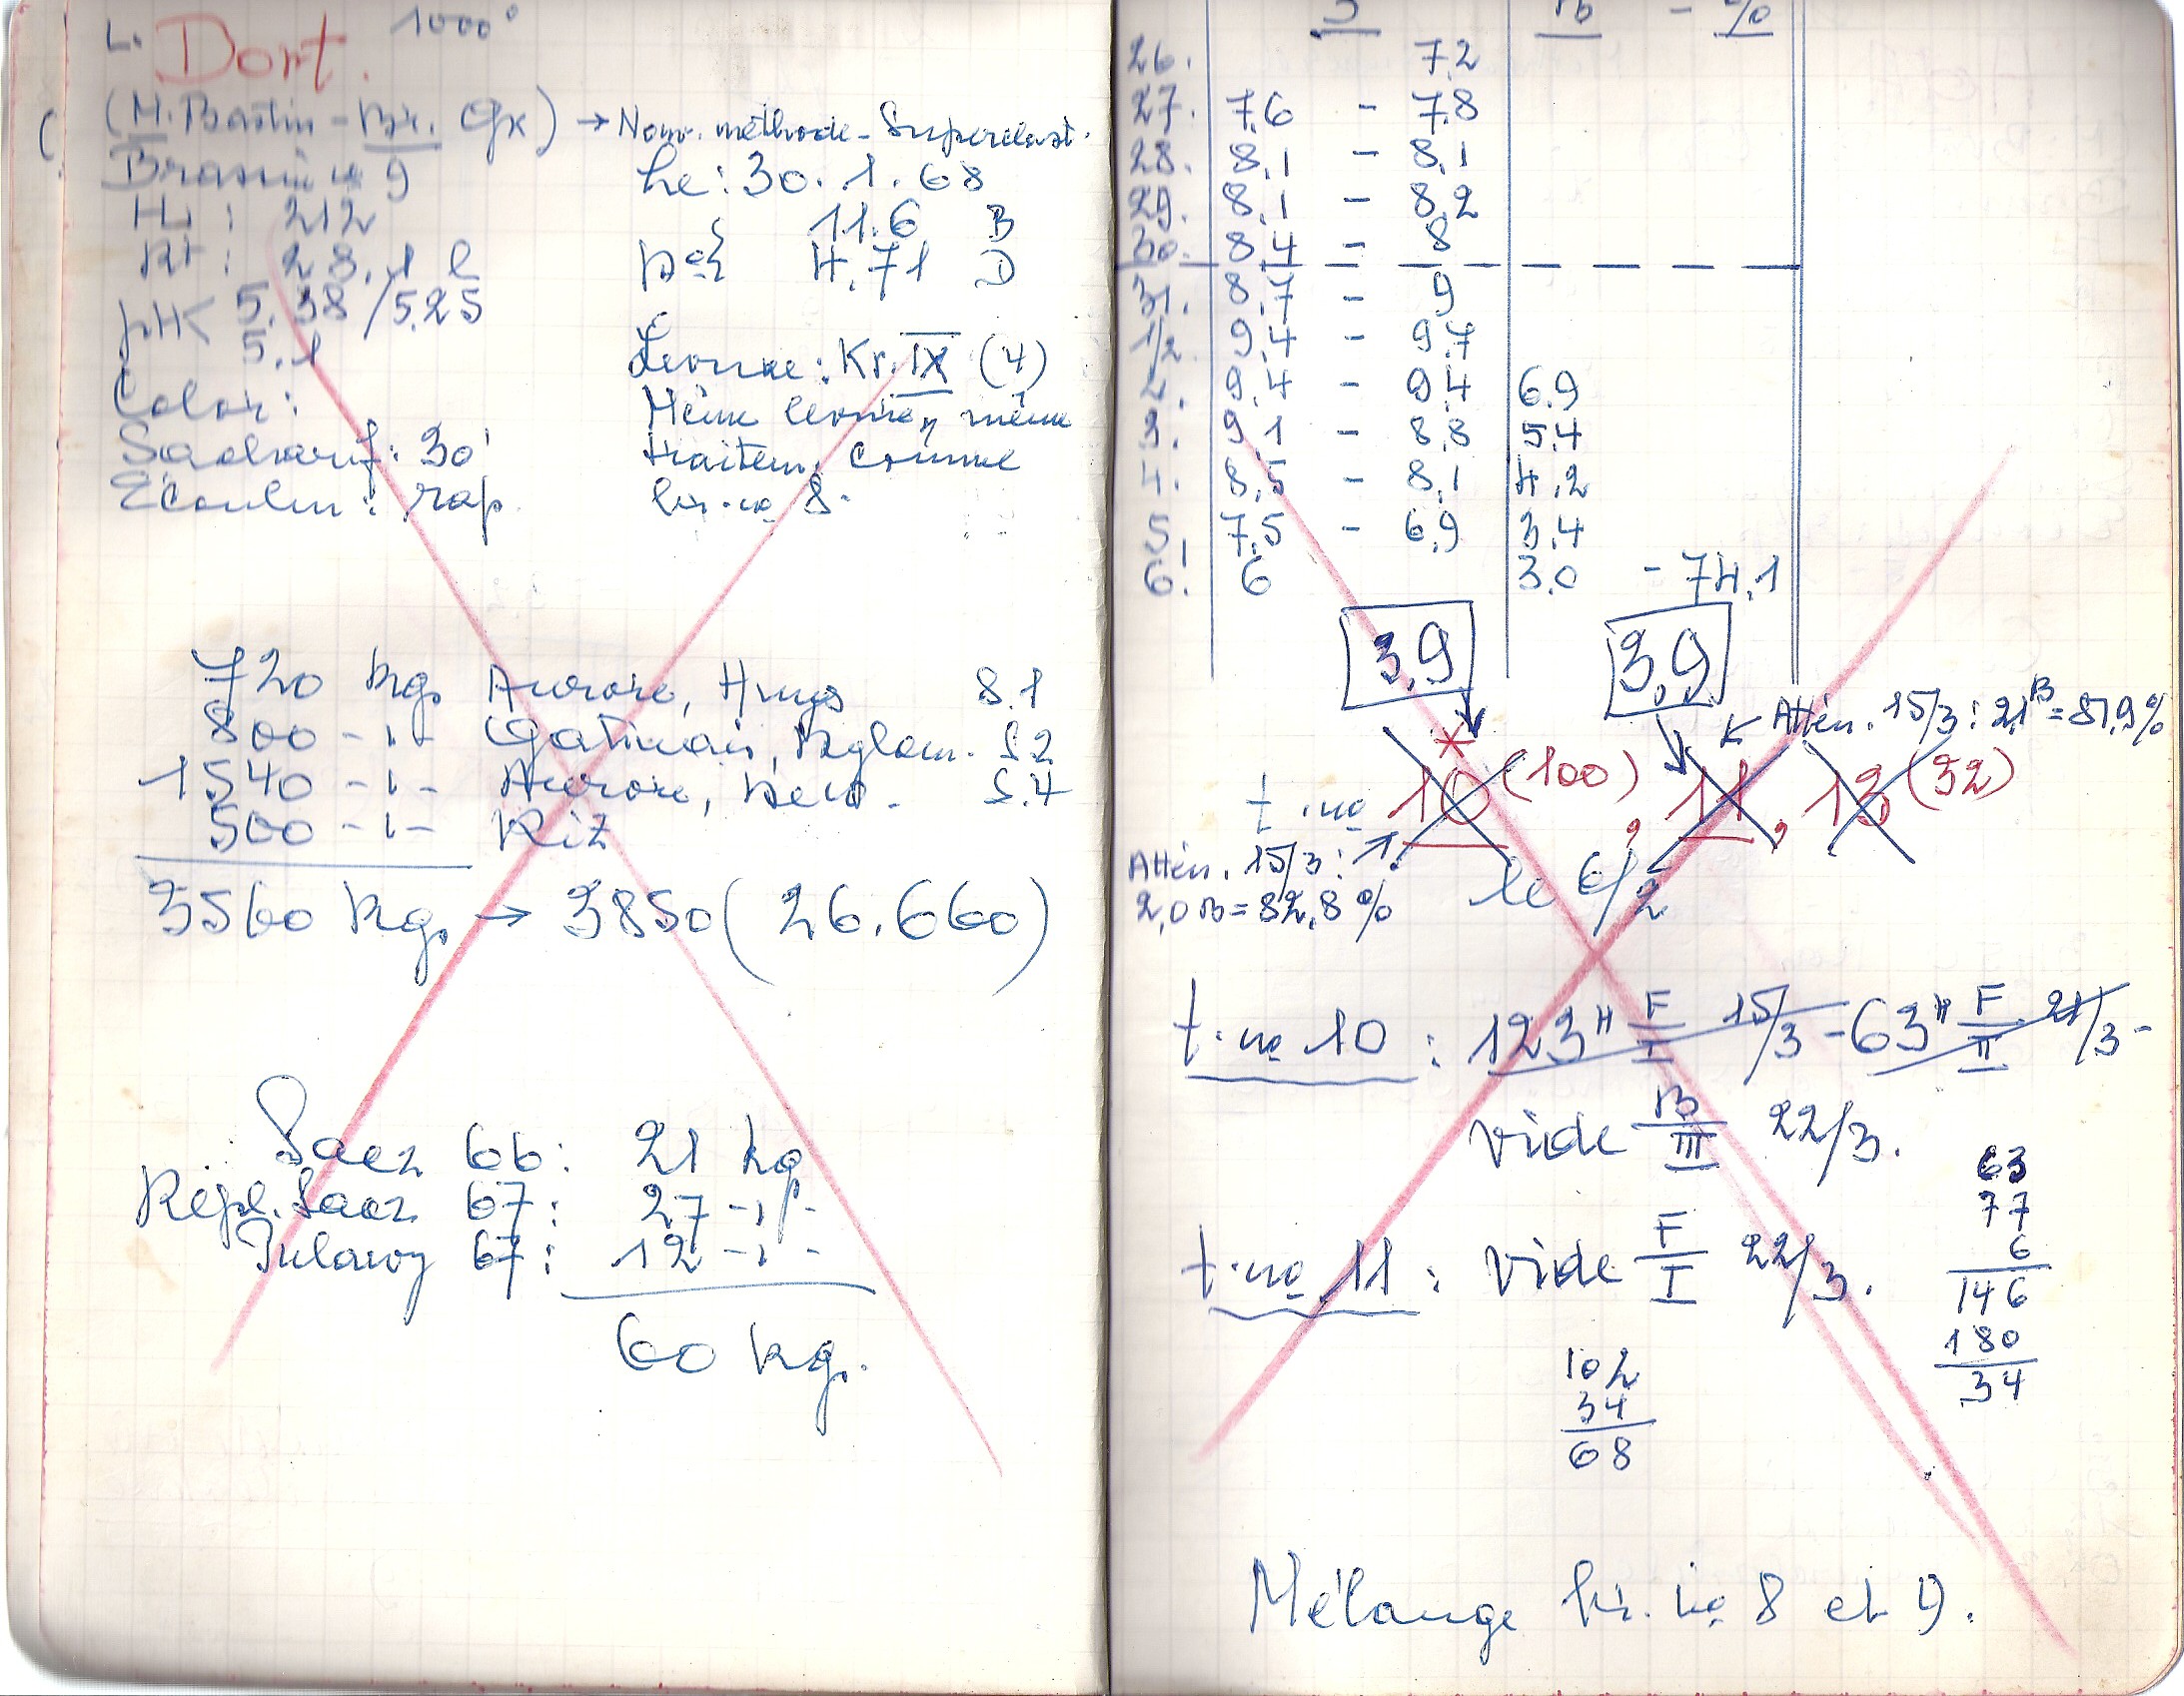 L. Dort. 1000°
(M. Bastin - Br. Gx) → Nouv. méthode - Superclast.
Brassin no 9
Le: 30.1.68
Hl: 212
11.6 B
Rt: 28.1 l
4.71 D
pH< 5.38/5.25
5.1
Levure: Kr. IX (4)
Color:
Même levure, même
Sacharif: 30'
traitem. comme
Ecoulem: rap.
br. no 8.
720 kg. Aurore, Hugs 8.1
800 -"- Gatinais, Agglom. 8.2
1540 -"- Aurore, 8.4
500 -"- Riz
3560 kg. → 3850 (26.660)
Saez 66: 21 kg
Repl. Saaz 67: 27 -"-
Pulawy 67: 12 -"-
60 kg.
B - %
26. 7.2
27. 7.6 - 7.8
28. 8.1 - 8.1
29. 8.1 - 8.2
30. 8.4 - 8
31. 8.7 - 9
1/2. 9.4 - 9.7
2. 9.4 - 9.4 6.9
3. 9.1 - 8.8 5.4
4. 8.5 - 8.1 4.2
5. 7.5 - 6.9 3.4
6. 6 3.0 - 74.1
3,9 3,9
Attén. 15/3: 2,1 B = 81,9%
t. no 10 (100), 11, 13 (32)
Attén. 15/3:
2,0 B = 82,8%
le 6/2
t. no 10: 123 H F/I 15/3 - 63 H F/II 21/3 -
vide B/III 22/3.
63
77
6
146
180
34
t. no 11: vide F/I 22/3.
102
34
68
Mélange br. no 8 et 9.